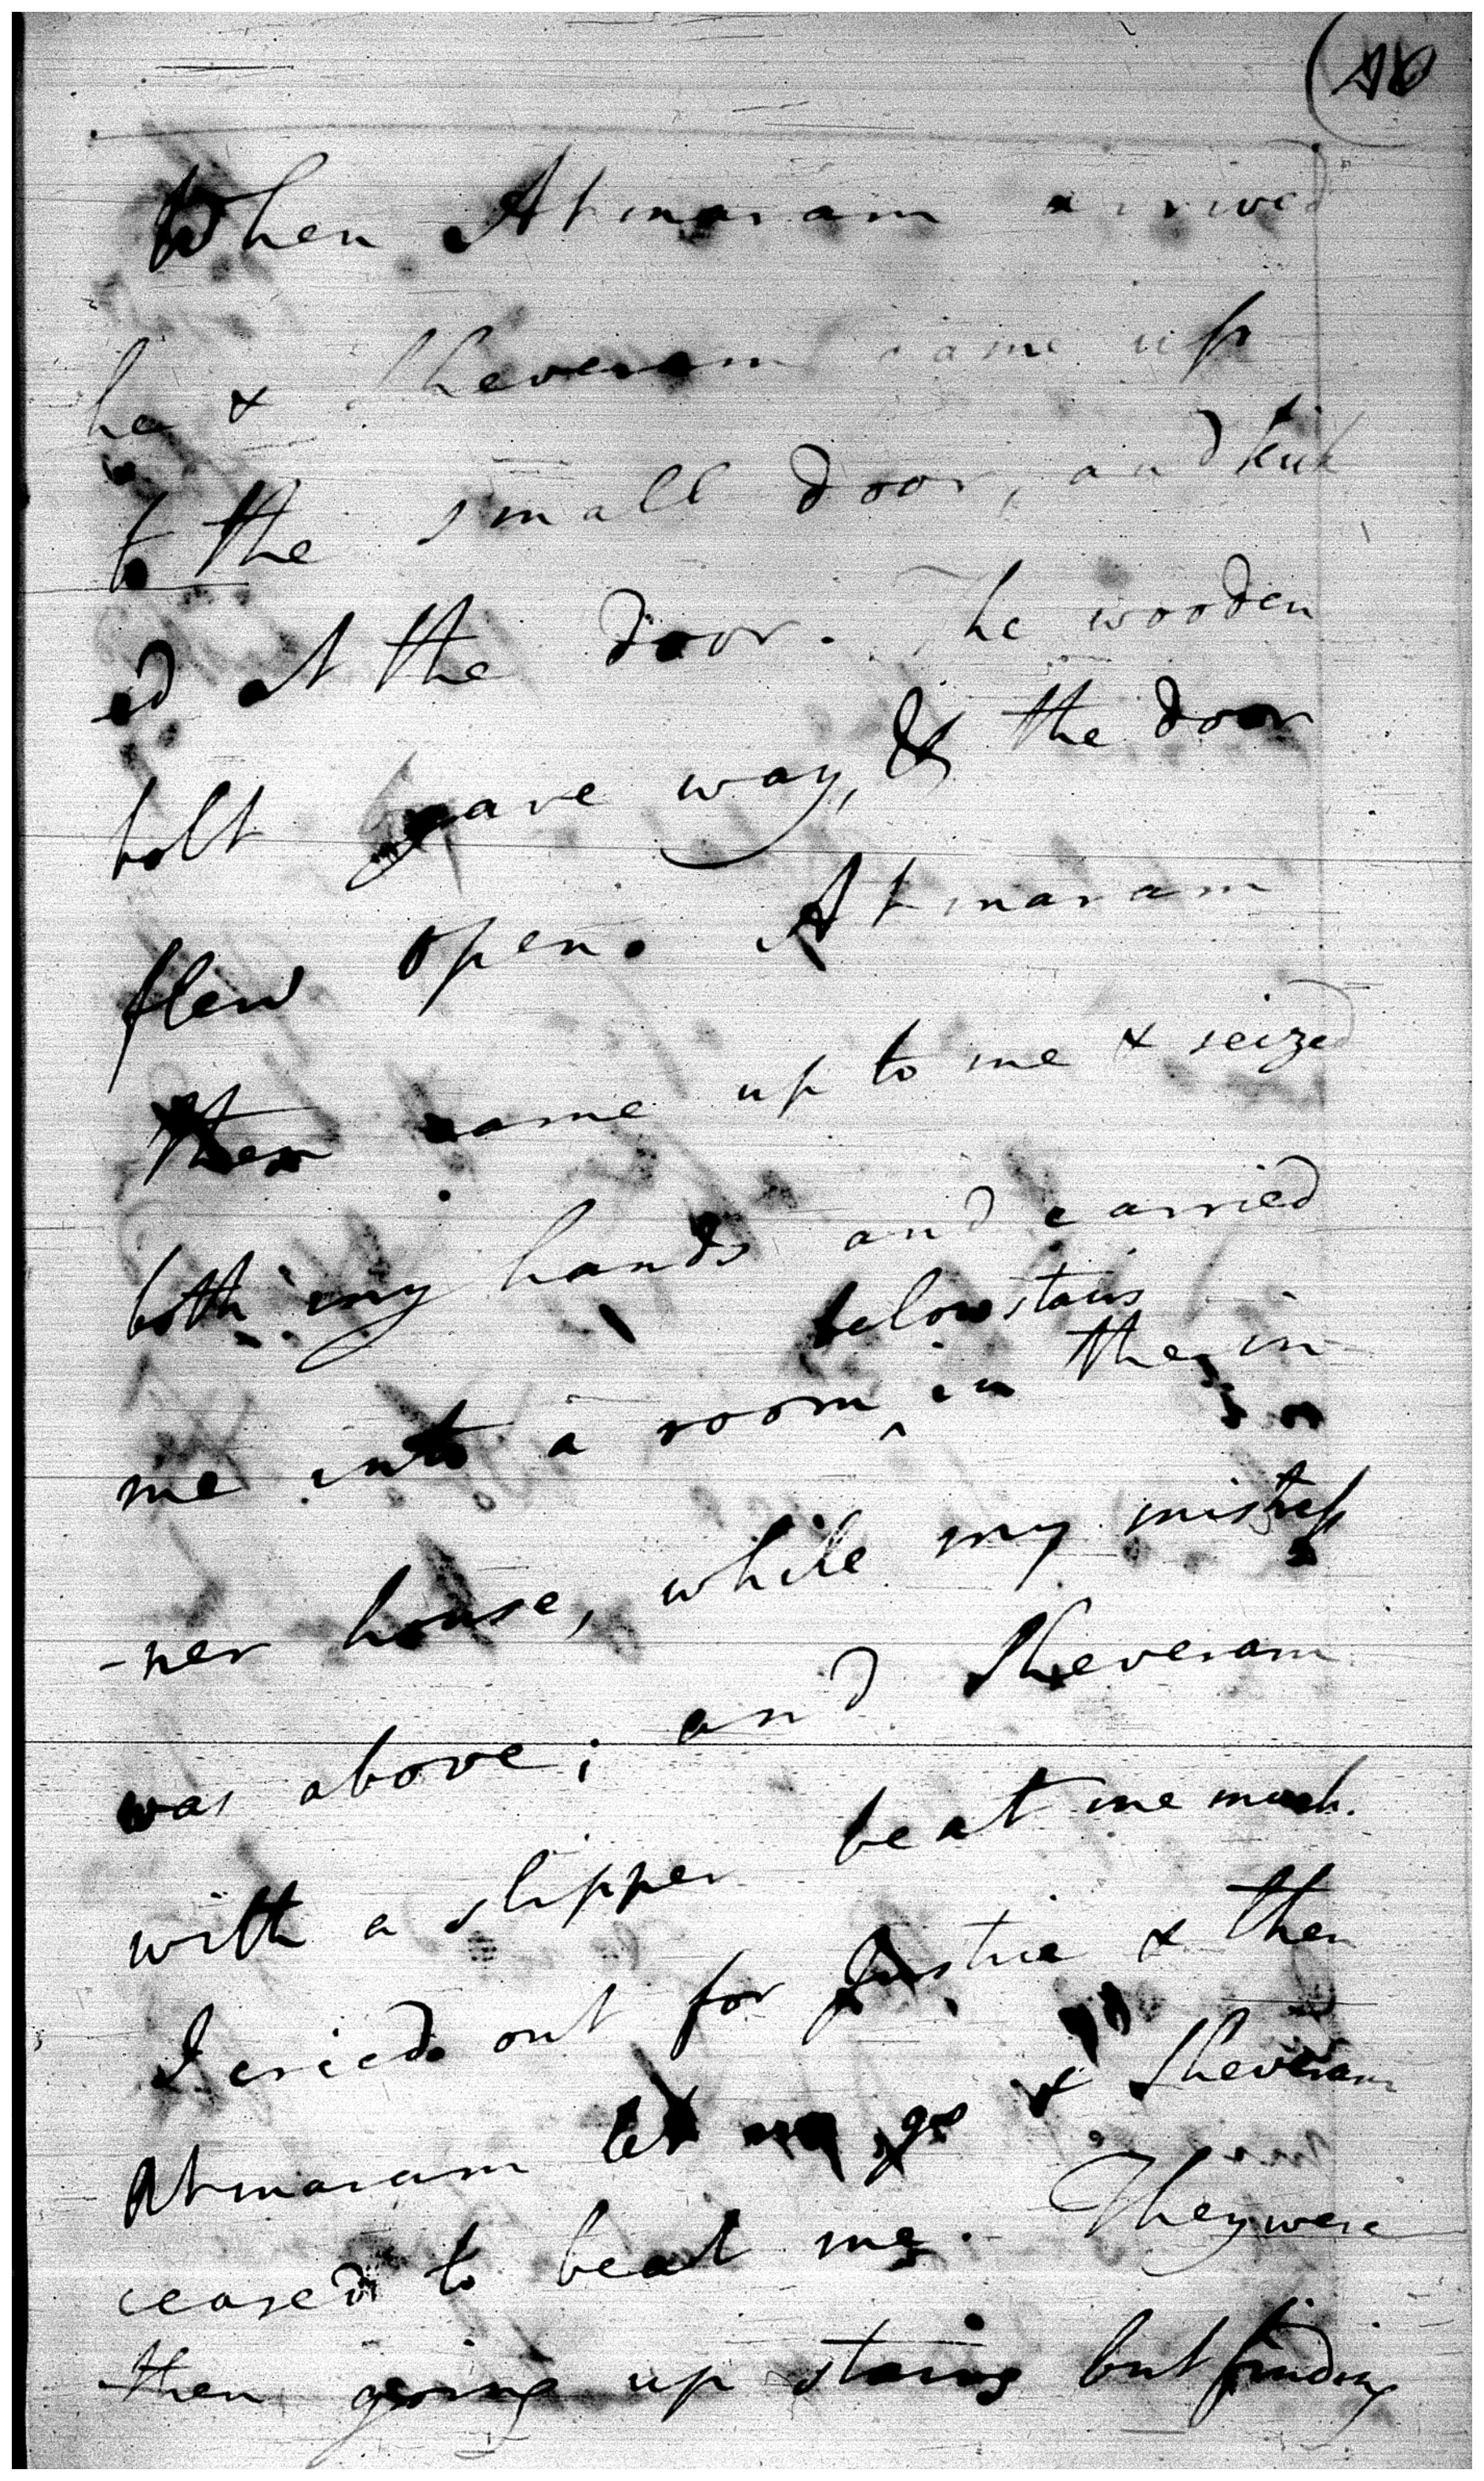 When Atmaram arrived
he & Sheveram came up
to the small door, and kick
ed at the door. The wooden
bolt gave way, & the door
flew open. Atmaram
then came up to me & seized
both my hands and carried
belowstairs
me into a room ^ in the in
-ner house, while my mistress
was above; and Sheveram
with a slipper beat me much.
I cried out for Justice & then
Atmaram let me go & Sheveram
ceased to beat me. They were
then going up stairs but finding